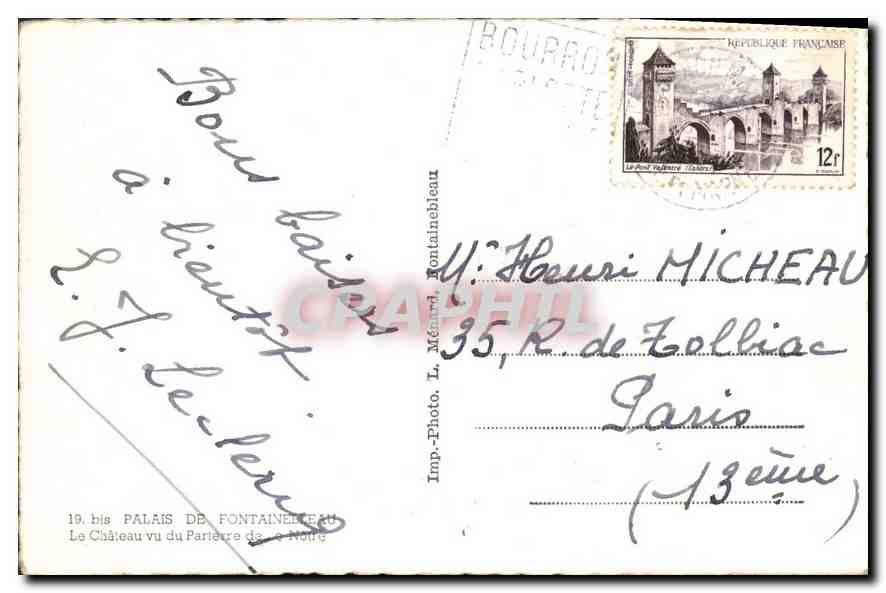 Bons baisers
à bientôt.
19. bis PALAIS DE FONTAINEBLEAU
Le Château vu du Parterre de Le Nôtre
Imp.-Photo. L. Ménard, Fontainebleau
CPAPHIL
BOURRO
REPUBLIQUE FRANÇAISE
Le Pont Valentré (Cahors)
12f
Mr Henri MICHEAU
35, R. de Tolbiac
Paris
(13ème)